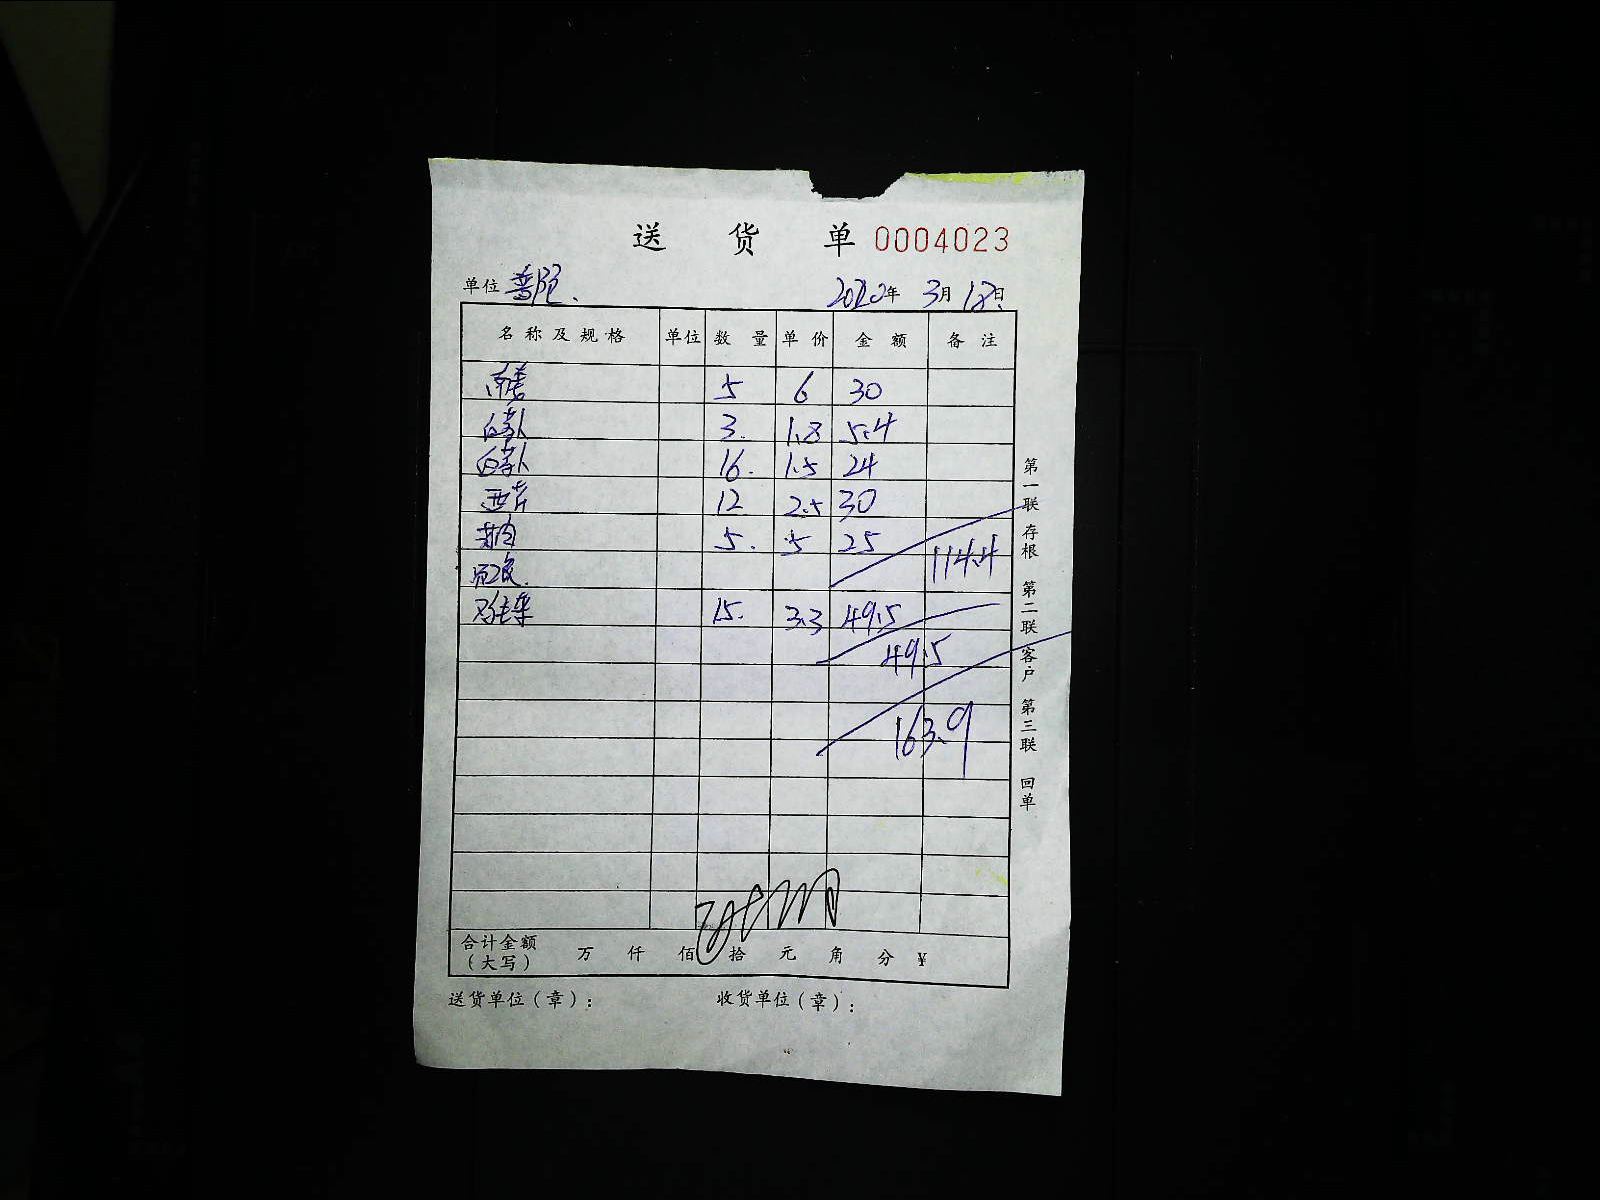 送 货 单 0004023
单位 普陀 2020年 3月18日
名称及规格 单位 数量 单价 金额 备注
5 6 30
白萝卜 3. 1.8 5.4
白萝卜 16. 1.5 24
西芹 12 2.5 30
5. 5 25
114.4
15. 3.3 49.5
49.5
163.9
合计金额（大写） 万 仟 佰 拾 元 角 分 ¥
送货单位（章）： 收货单位（章）：
第一联 存根 第二联 客户 第三联 回单